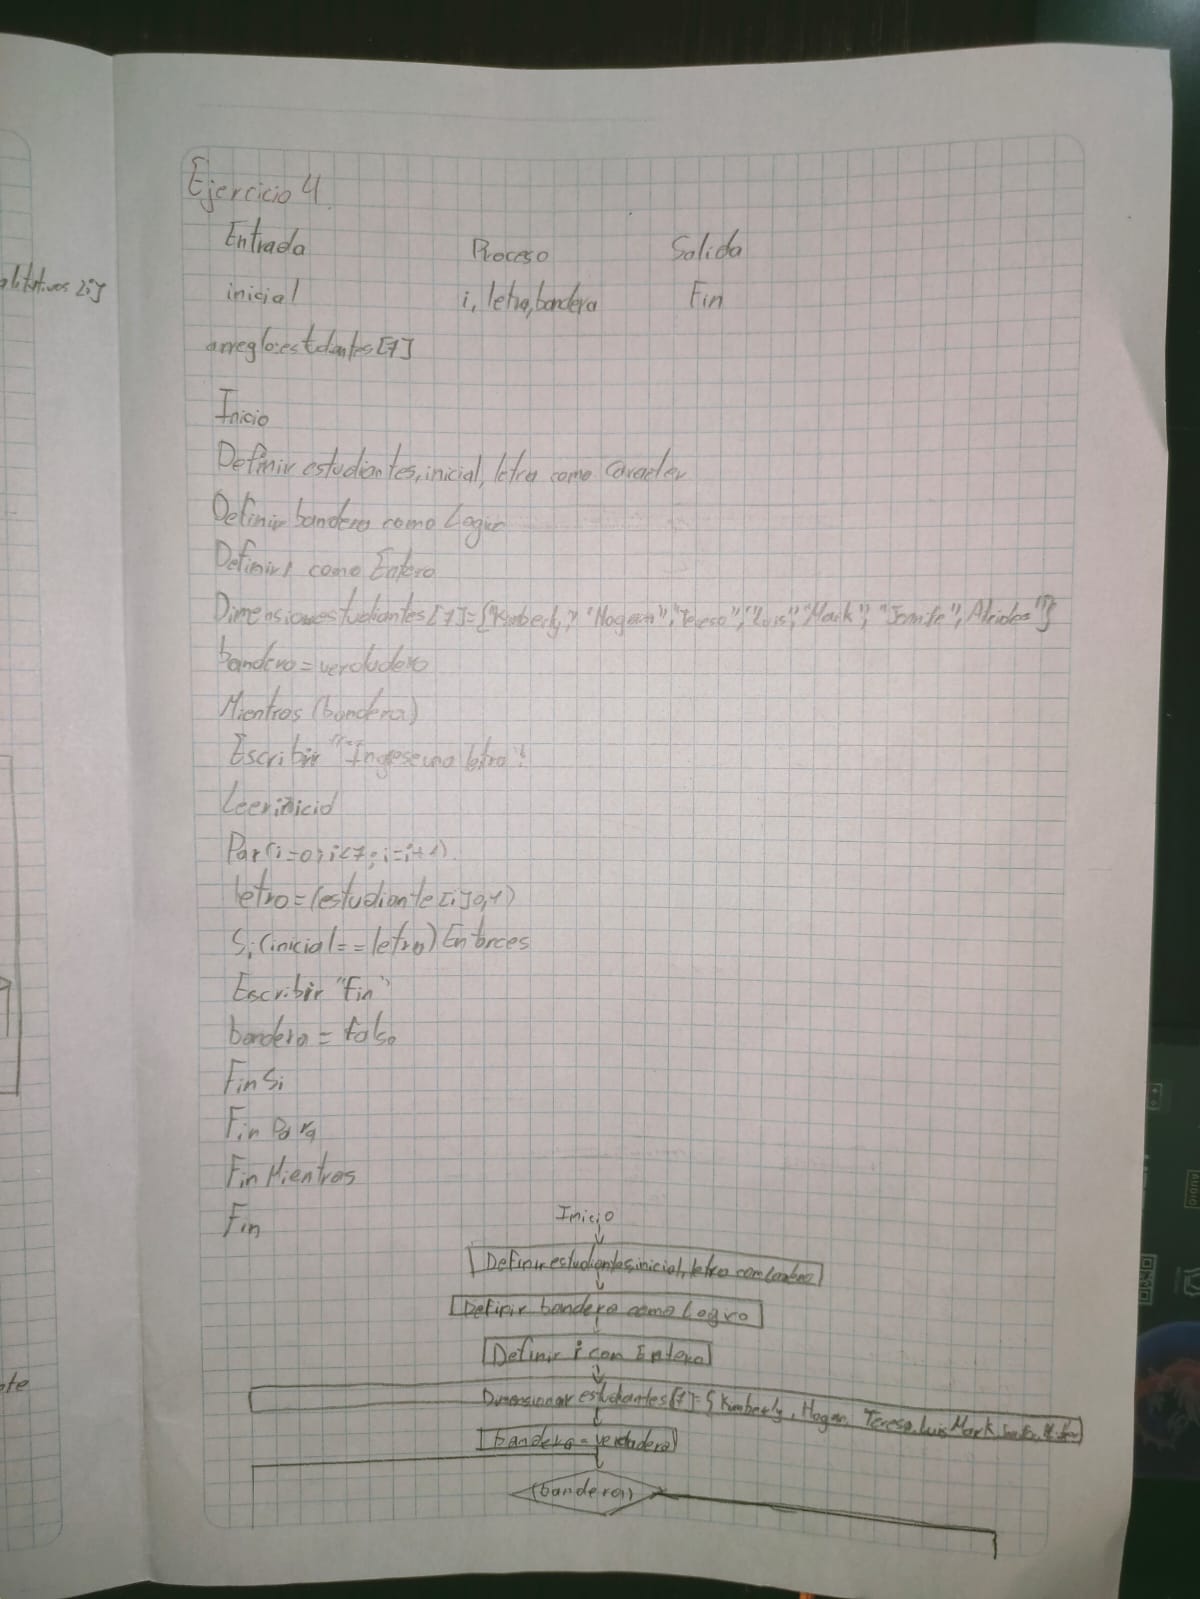 Ejercicio 4
Entrada Proceso Salida
inicial i, letra, bandera Fin
arreglo: estdiantes [7]
Inicio
Definir estudiantes, inicial, letra como Caracter
Definir bandera como Logic
Definir i como Entero
Dimension estudiantes [7]={"Kimberly", "Hogan", "Teresa", "Luis", "Mark", Alcides"}
bandera = verdadero
Mientras (bandera)
Escribir "Ingrese una letra"
Leer inicial
Par(i=0; i<7; i=i+1)
letra = (estudiante [i]0,1)
Si (inicial == letra) Entonces
Escribir "Fin"
bandera = falso
Fin Si
Fin Para
Fin Mientras
Fin
Inicio
Definir estudiantes, inicial, letra como
Definir bandera como Logro
Definir i com Entero
Dimensionar estudiantes [7]={Kimberly, Hogan, Teresa, Luis Mark
bandera = verdadera
(bandera)
alitativos [i]